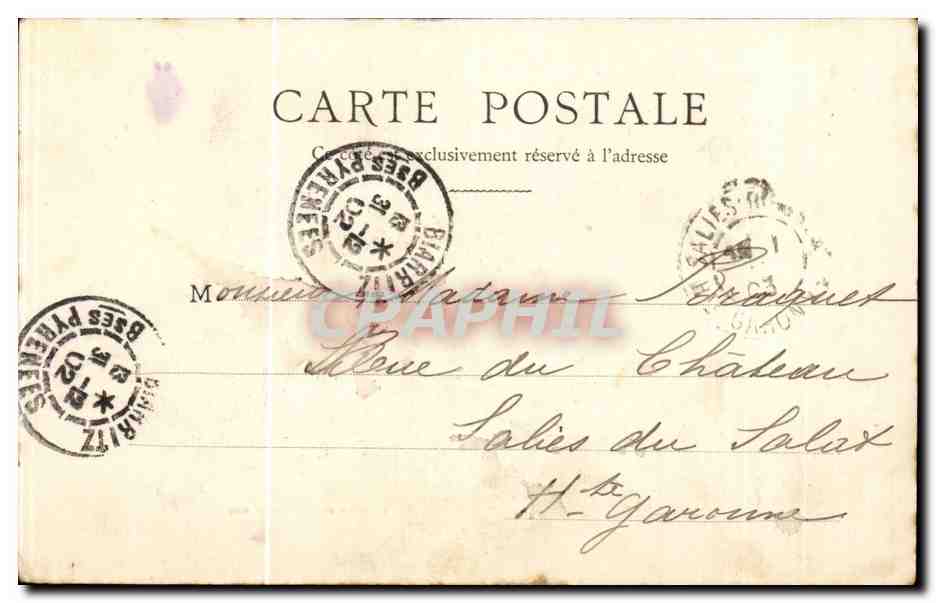 CARTE POSTALE
Ce côté est exclusivement réservé à l'adresse
BIARRITZ
BSES PYRENEES
31
12
02
SALIES
1
03
GARONNE
CPAPHIL
Monsieur Madame
Rue du Château
Salies du Salat
Hte Garonne
BIARRITZ
BSES PYRENEES
31
12
02